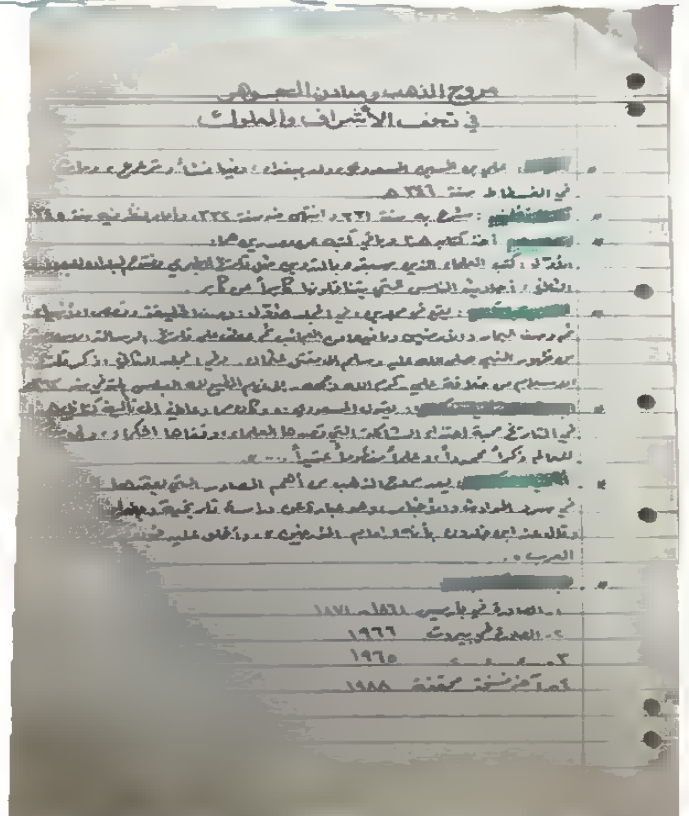 مروج الذهب ومعادن الجوهر
في تحف الأشراف والملوك
علي بن الحسين المسعودي، ولد ببغداد، وفيها نشأ وترعرع، ومات
في الفسطاط سنة ٣٤٦ هـ
: شرع به سنة ٣٣٢ وانتهى منه سنة ٣٣٦، وأعاد النظر فيه سنة ٣٤٥
أخذ كتابه هذا وباقي كتبه من مصدرين هما:
الأول: كتب العلماء الذين سبقوه بالتدوين مثل تاريخ الطبري
الثاني: أحاديث الناس التي يتناقلونها كابراً عن كابر.
: يقع في جزأين، في المجلد الأول: وصف الخليقة وقصص الأنبياء
ثم وصف البحار والأرضين وما فيها من العجائب ثم عطف على تاريخ
من ظهور النبي صلى الله عليه وسلم إلى مقتل عثمان. وفي المجلد الثاني: ذكر تاريخ
الإسلام من خلافة علي كرم الله وجهه إلى أيام المطيع لله العباسي
: يقول المسعودي: وكان ما دعاني إلى تأليف كتابي هذا
في التاريخ محبة احتذاء الشاكلة التي قصدها العلماء، وقفاها الحكماء، وأن
للعالم ذكراً محموداً، وعلماً منظوماً عتيداً ....
: يعد مروج الذهب من أهم المصادر التي يعتمدها
في سرد الحوادث والأخبار، وهو عبارة عن دراسة تاريخية
وقال عنه ابن خلدون بأنه: إمام المؤرخين، وأطلق عليه
العرب.
١- الصادرة في باريس ١٨٦١ - ١٨٧١
٢- الصادرة في بيروت ١٩٦٦
٣- = = = ١٩٦٥
٤- آخر نسخة محققة ١٩٨٨